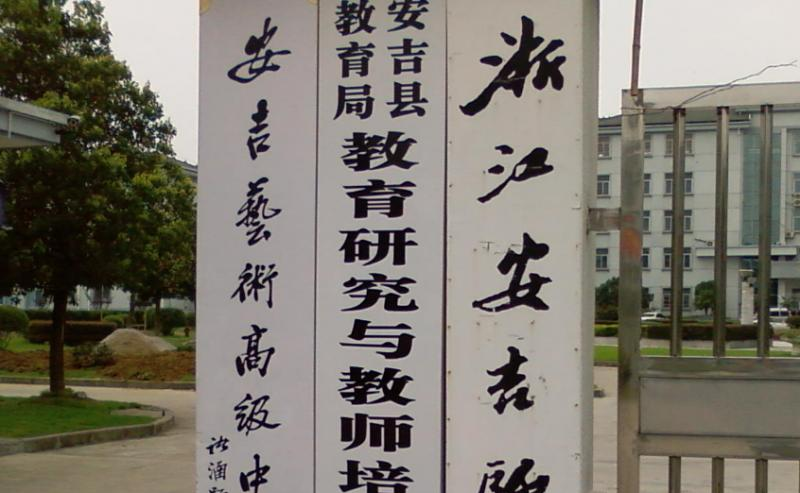 浙江安吉
安吉县
教育局
教育研究与教师培
安吉藝術高级中